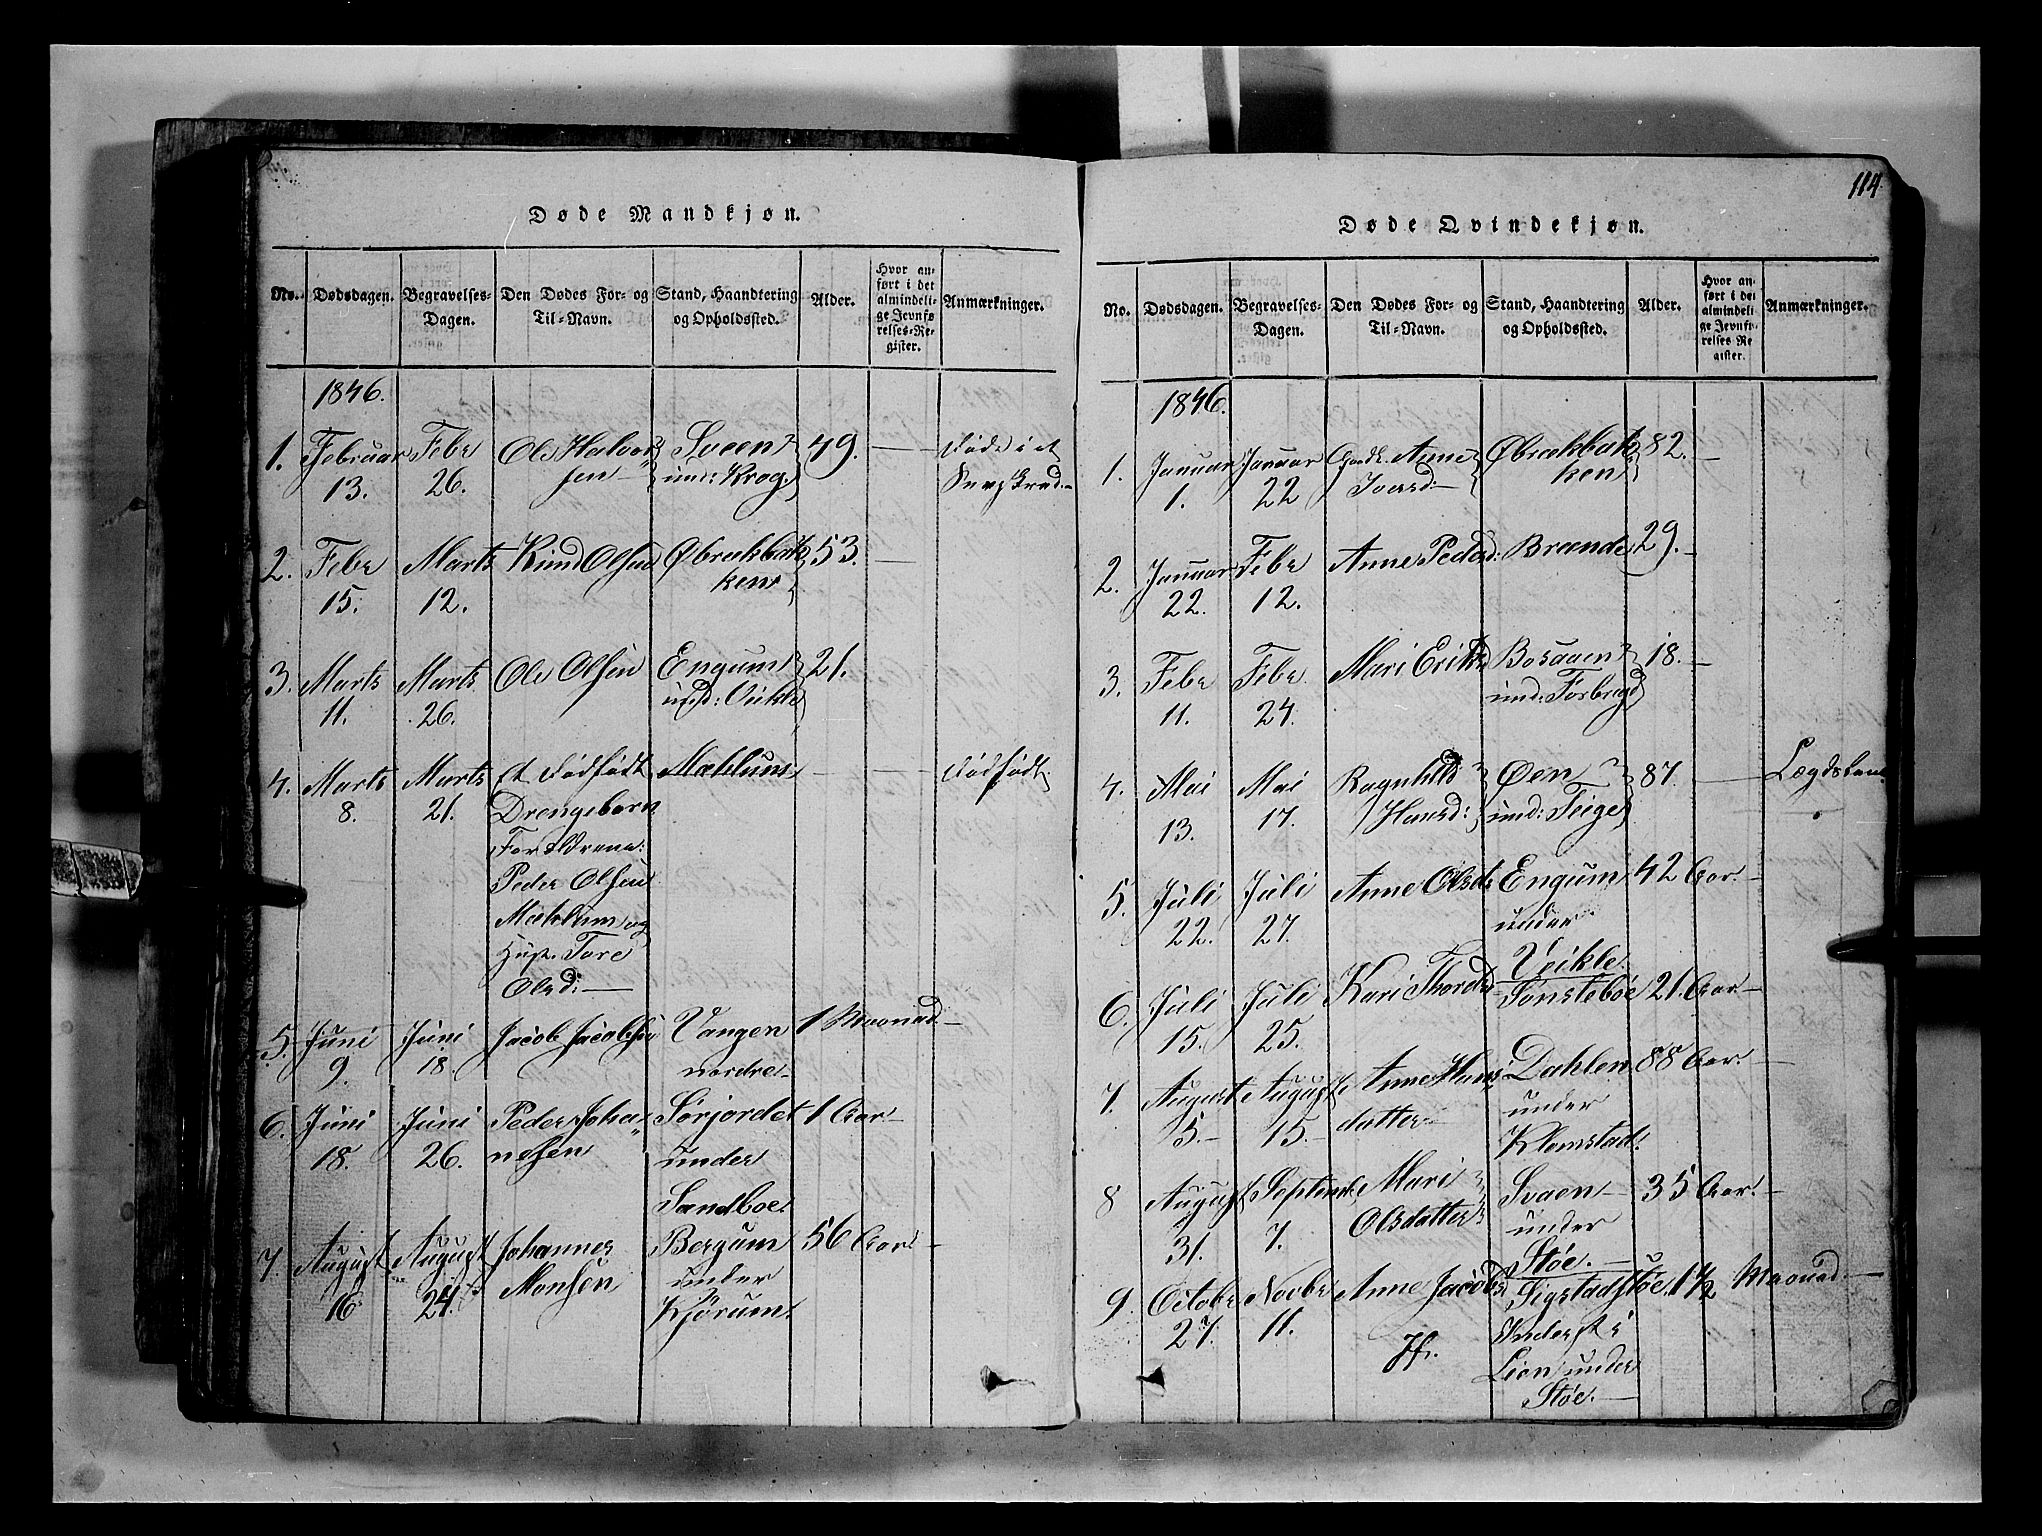 114.
Døde Mandkjøn.
No. Dødsdagen. Begravelses-Dagen. Den Dødes For- og Til-Navn. Stand, Haandtering og Opholdssted. Alder. Hvor anført i det almindelige Jevnførelses-Register. Anmærkninger.
1846.
1. Februar Febr Ole Halvor Sveen 49. — Døde i et
13. 26. sen — und: Krog.
2. Febr Marts Knud Olsen Øbrekbak 53. —
15. 12. ken
3. Marts Marts Ole Olsen Engum 21.
11. 26. und: Veikle
4. Marts Marts et dødfødt Mæhlum — — dødfødt
8. 21. Drengebarn
Forældrene:
Peder Olsen
Mæhlum og
Hust. Tore
Olsd: —
5. Juni Juni Jacob Jacobsen Vangen 1 Maanad —
9. 18. nordre —
6. Juni Juni Peder Joha Sørjordet 1 Aar —
18. 26. nesen under
Sandboe.
7. August August Johannes Bergum 56 Aar —
16. 24. Monsen under
Kjørum.
Døde Qvindekjøn.
No. Dødsdagen. Begravelses-Dagen. Den Dødes For- og Til-Navn. Stand, Haandtering og Opholdssted. Alder. Hvor anført i det almindelige Jevnførelses-Register. Anmærkninger.
1846.
1. Januar Januar Anne Øbrekbak 82. —
1. 22 Iversd: ken
2. Januar Febr Anne Pedsd: Brænde 29. —
22. 12.
3. Febr Febr Mari Eriksd Bosaaen 18. —
11. 24. und: Forbregd
4. Mai Mai Ragnhild Øen 87. — Lægdslem
13. 17. Hansd: und: Teige
5. Juli Juli Anne Olsd: Engum 42 Aar. —
22. 27. under
Veikle.
6. Juli Juli Kari Thordsd Sønsteboe 21. Aar —
15. 25.
7. August August Anne Hans Dahlen 88 Aar. —
5. — 15. — datter under
Klomstad.
8 August Septembr Mari Svaen — 35 Aar. —
31. 7. Olsdatter under
Støe. —
9. Octobr Novbr Anne Jacobs Sigstadstøe. 1 1/2 Maanad —
27. 11. Inderst i
Lien under
Støe. —